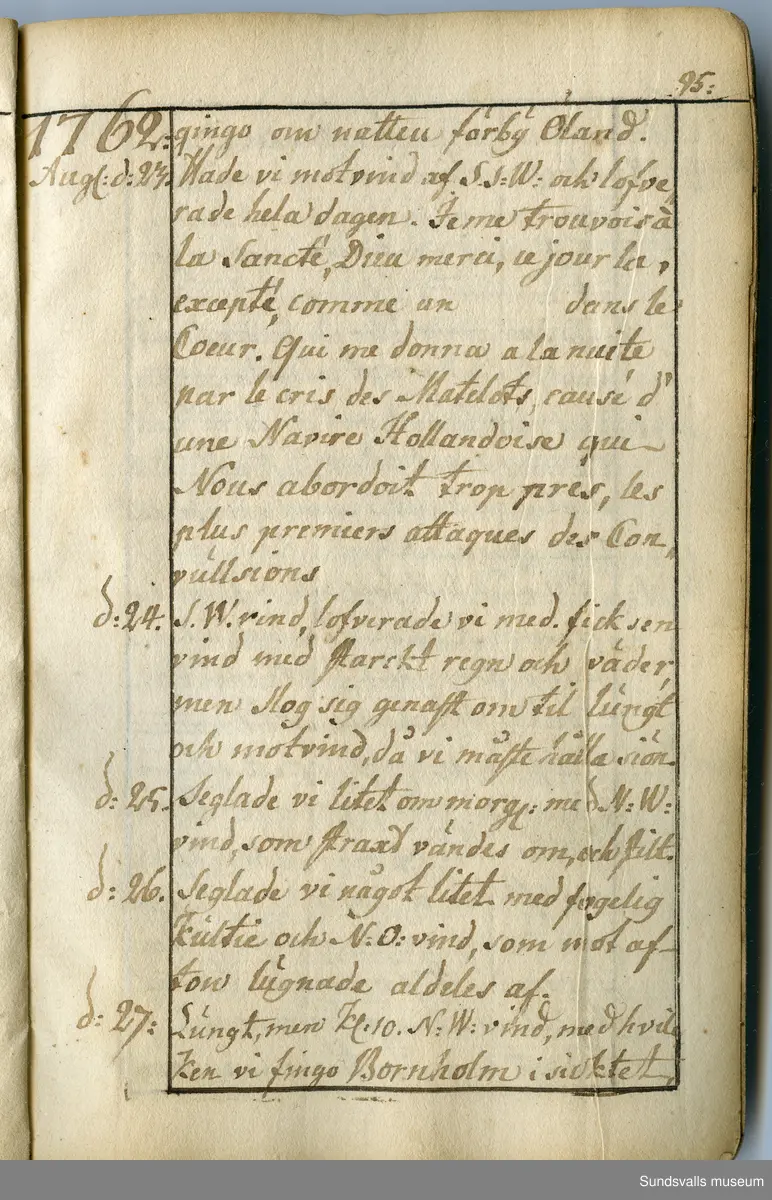 95:
1762: gingo om natten förbÿ Öland.
Augl: d: 23. Hade vi motvind af S.S:W: och lofve,,
rade hela dagen. Je me trouvois à
la Sancté, Dieu merci, ce jour la,
excepté, comme un dans le
Coeur. Qui me donna a la nuite
par le cris des Matelots, causé d'
une Navire Hollandoise qui
Nous abordoit trop prés, les
plus premiers attaques des Con,,
vullsions
d: 24. S. W. vind, lofverade vi med. fick sen
vind med starckt regn och väder,
men slog sig genast om til lungt
och motvind, då vi måste hålla siön.
d: 25. Seglade vi litet om morgl: med N: W:
vind, som straxt vändes om, och stilt.
d: 26. Seglade vi något litet med fogelig
kultie och N: O: vind, som mot af-
ton lugnade aldeles af.
d: 27: Lungt, men Kl. 10. N: W: vind, med hvil,,
ken vi fingo Bornholm i sicktet,
Sundsvalls museum